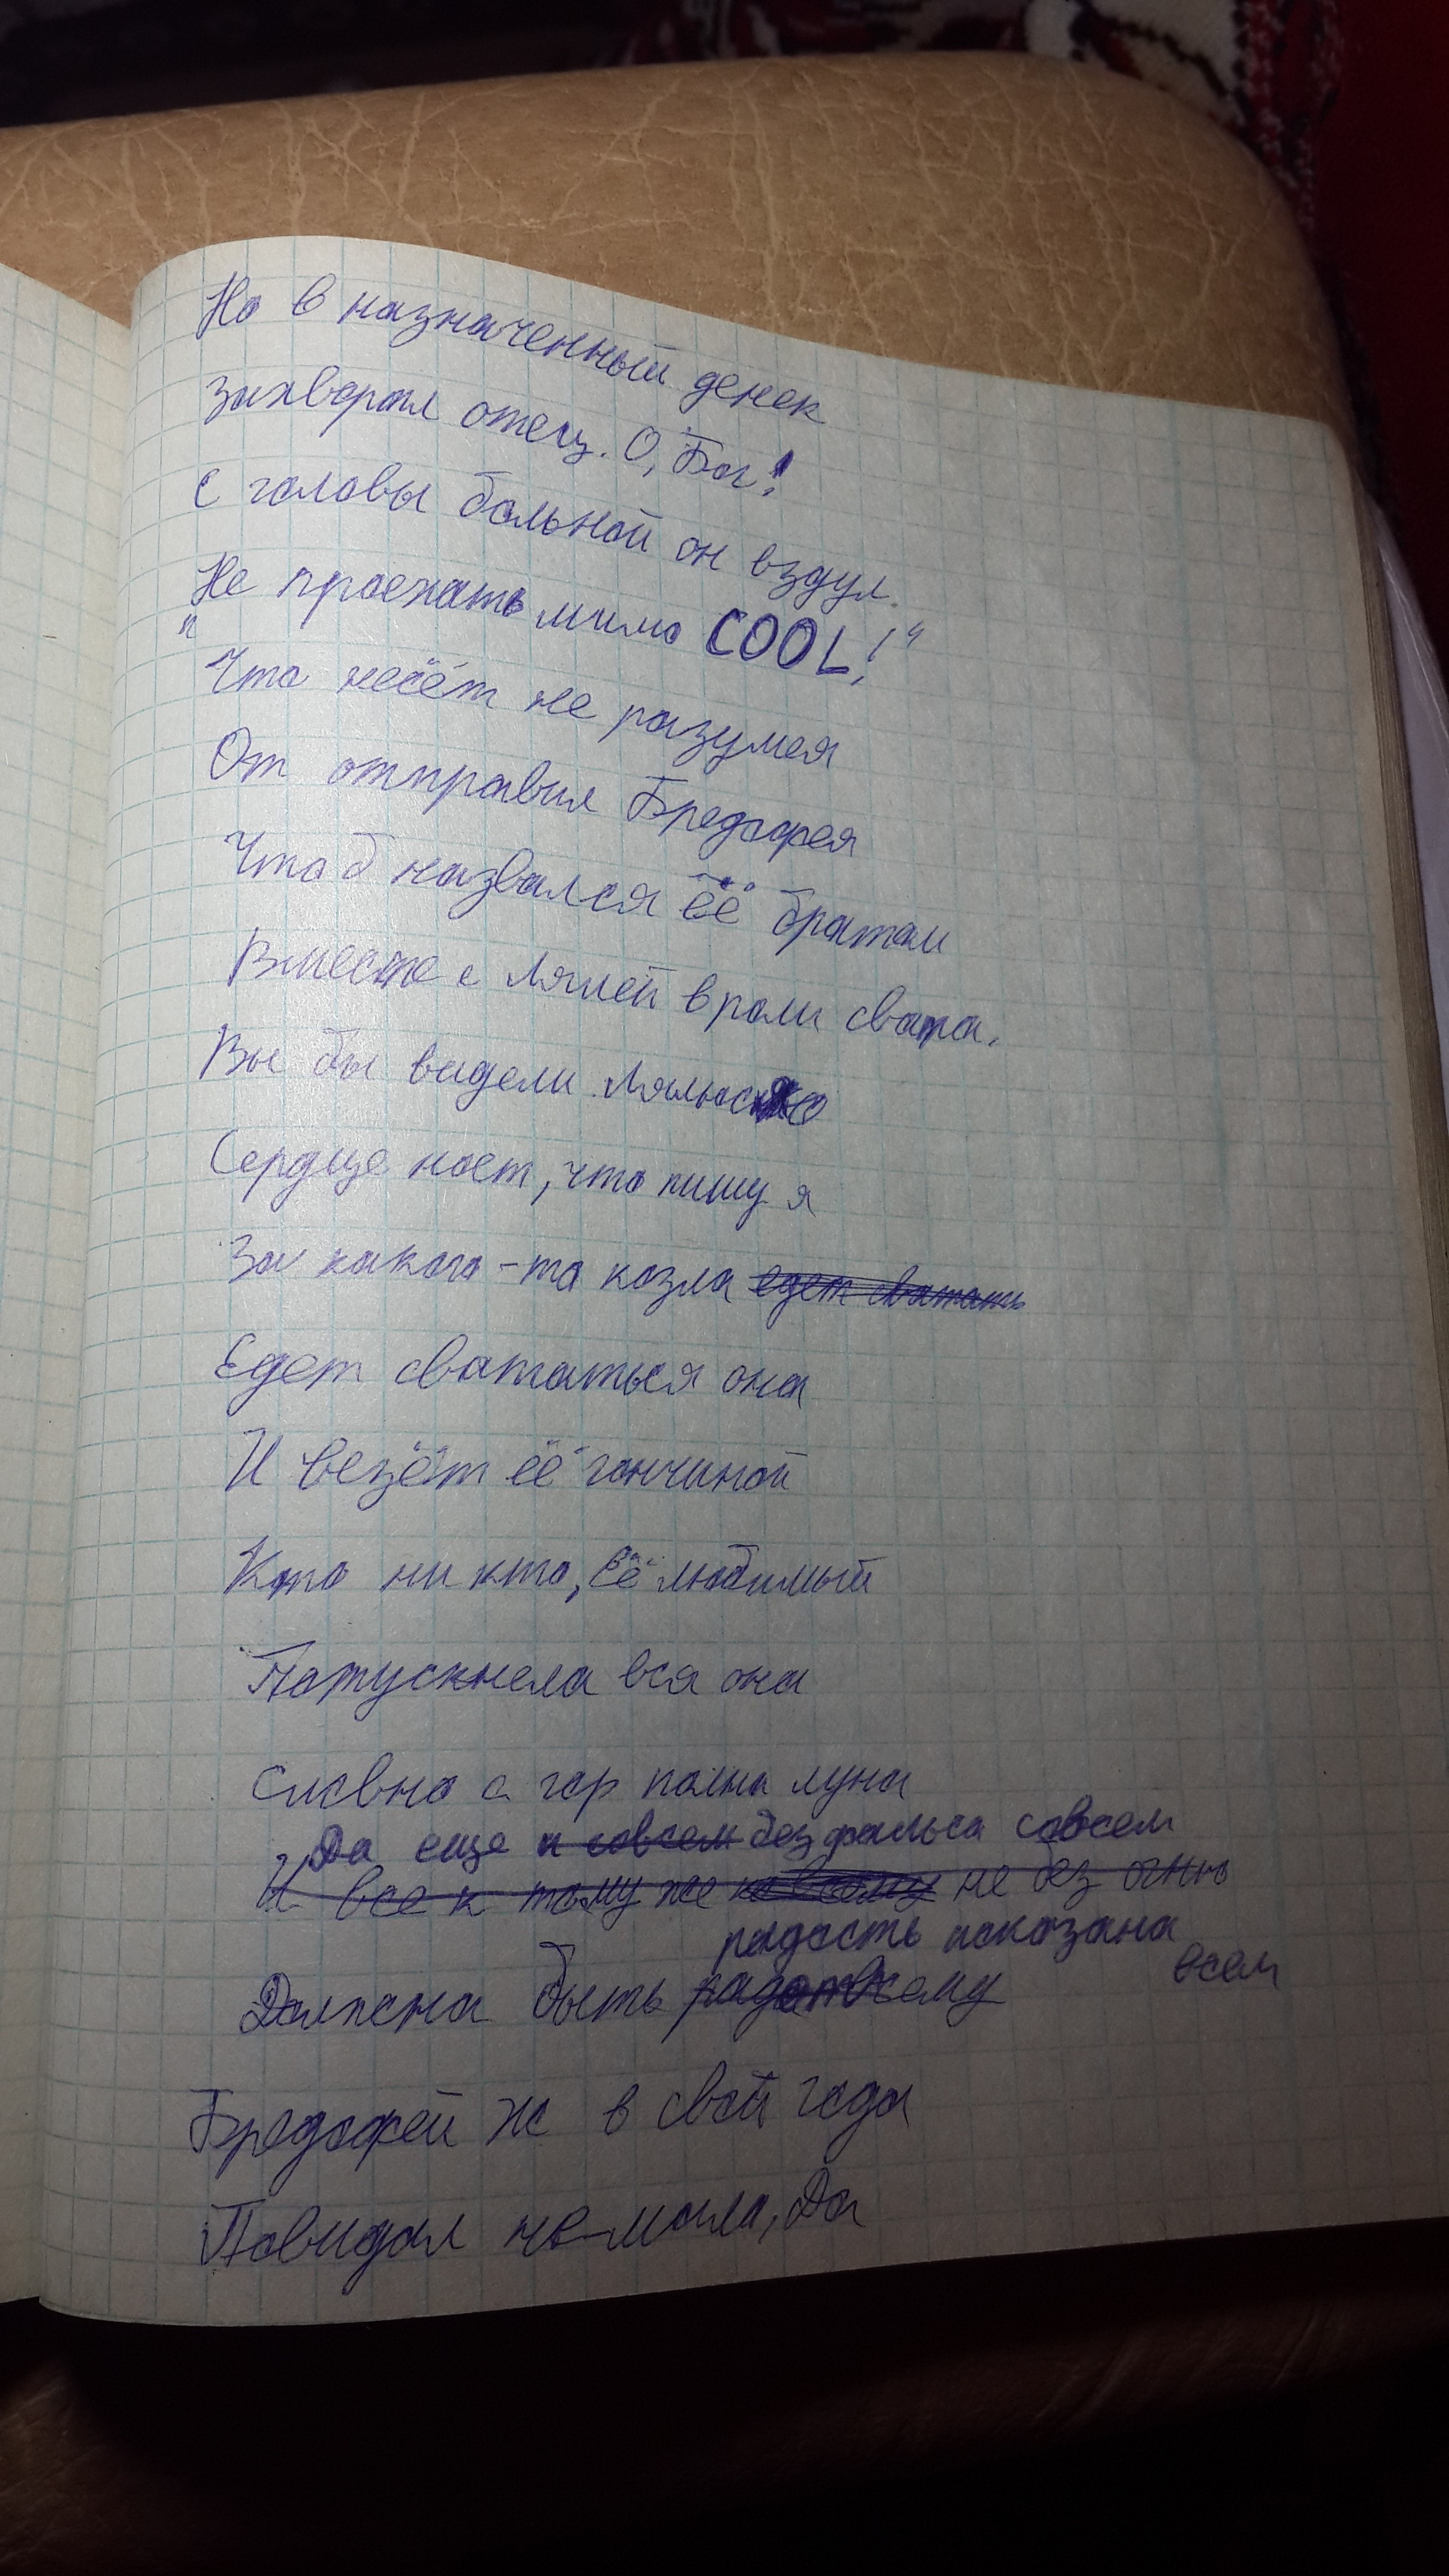 Но в назначенный денек
Захворал отец. О, Бог!
С головы больной он вздул
"Не проехать мимо COOL!"
Что несёт не разумея
От отправил Бредофея
Чтоб назвался её братом
Вместе с Лялей в роли свата.
Вы бы видели Лялюсю
Сердце ноет, что пишу я
За какого-то козла едет сватать
Едет свататься она
И везёт её гончиной
Кто ни кто, её любимый
Потускнела вся она
Словно с гор полна луна
Да еще и совсем без фальса совсем
И все к тому же не без огню
радость показана всем
Должна быть
Бредофей ж в свои года
Повидал не мало, да